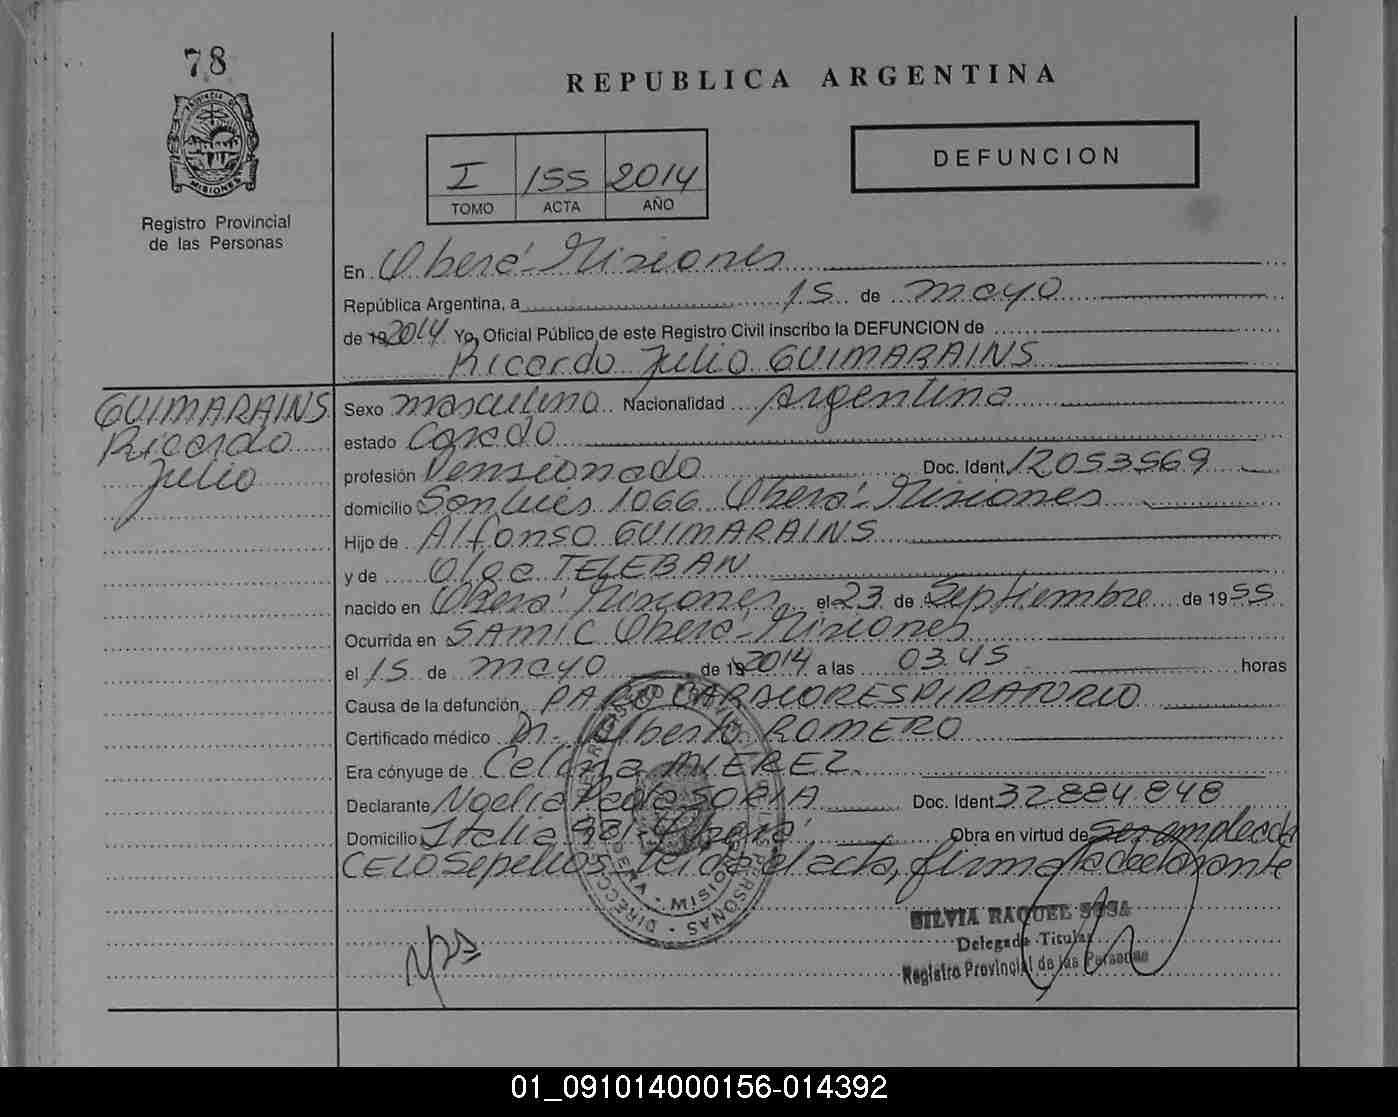 78
PROVINCIA DE
MISIONES
Registro Provincial
de las Personas
REPUBLICA ARGENTINA
I 155 2014
TOMO ACTA AÑO
DEFUNCION
En Oberá - Misiones
República Argentina, a 15 de mayo
de 19 2014 Yo, Oficial Público de este Registro Civil inscribo la DEFUNCION de
Ricardo Julio GUIMARAINS
GUIMARAINS
Ricardo
Julio
Sexo masculino Nacionalidad Argentina
estado Casado
profesión Pensionado Doc. Ident. 12053569
domicilio San Luis 1066 Oberá - Misiones
Hijo de Alfonso GUIMARAINS
y de Olga TELEBAN
nacido en Oberá Misiones el 23 de Septiembre de 1955
Ocurrida en SAMIC Oberá - Misiones
el 15 de mayo de 19 2014 a las 03.45 horas
Causa de la defunción PARO CARDIORESPIRATORIO
Certificado médico Dr. Alberto ROMERO
Era cónyuge de Celina MIEREZ
Declarante Noelia Paola SORIA Doc. Ident. 32.884.848
Domicilio Italia 981 - Oberá Obra en virtud de ser empleada
CELO Sepelios - Leida el acta, firma la declarante
SILVIA RAQUEL SOSA
Delegada Titular
Registro Provincial de las Personas
01_091014000156-014392